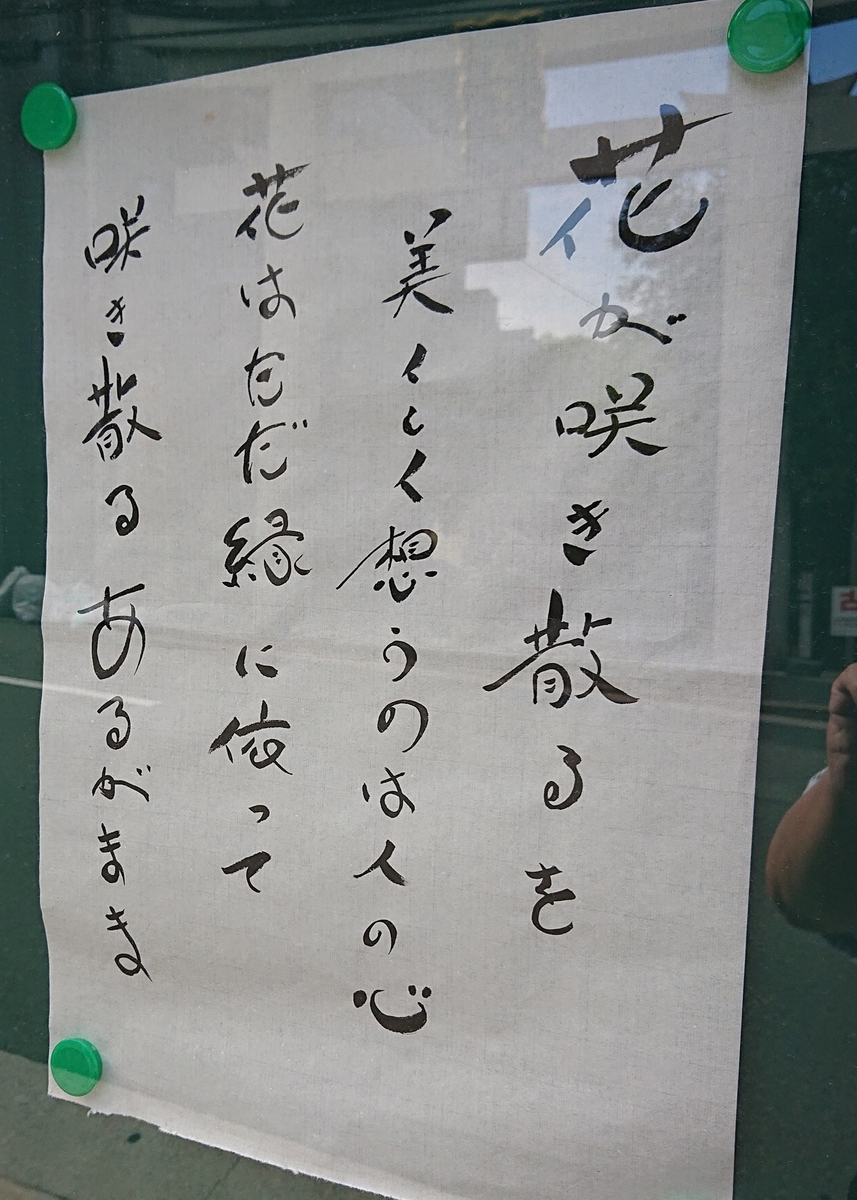 花が咲き散るを
美しく想うのは人の心
花はただ縁に依って
咲き散るあるがまま